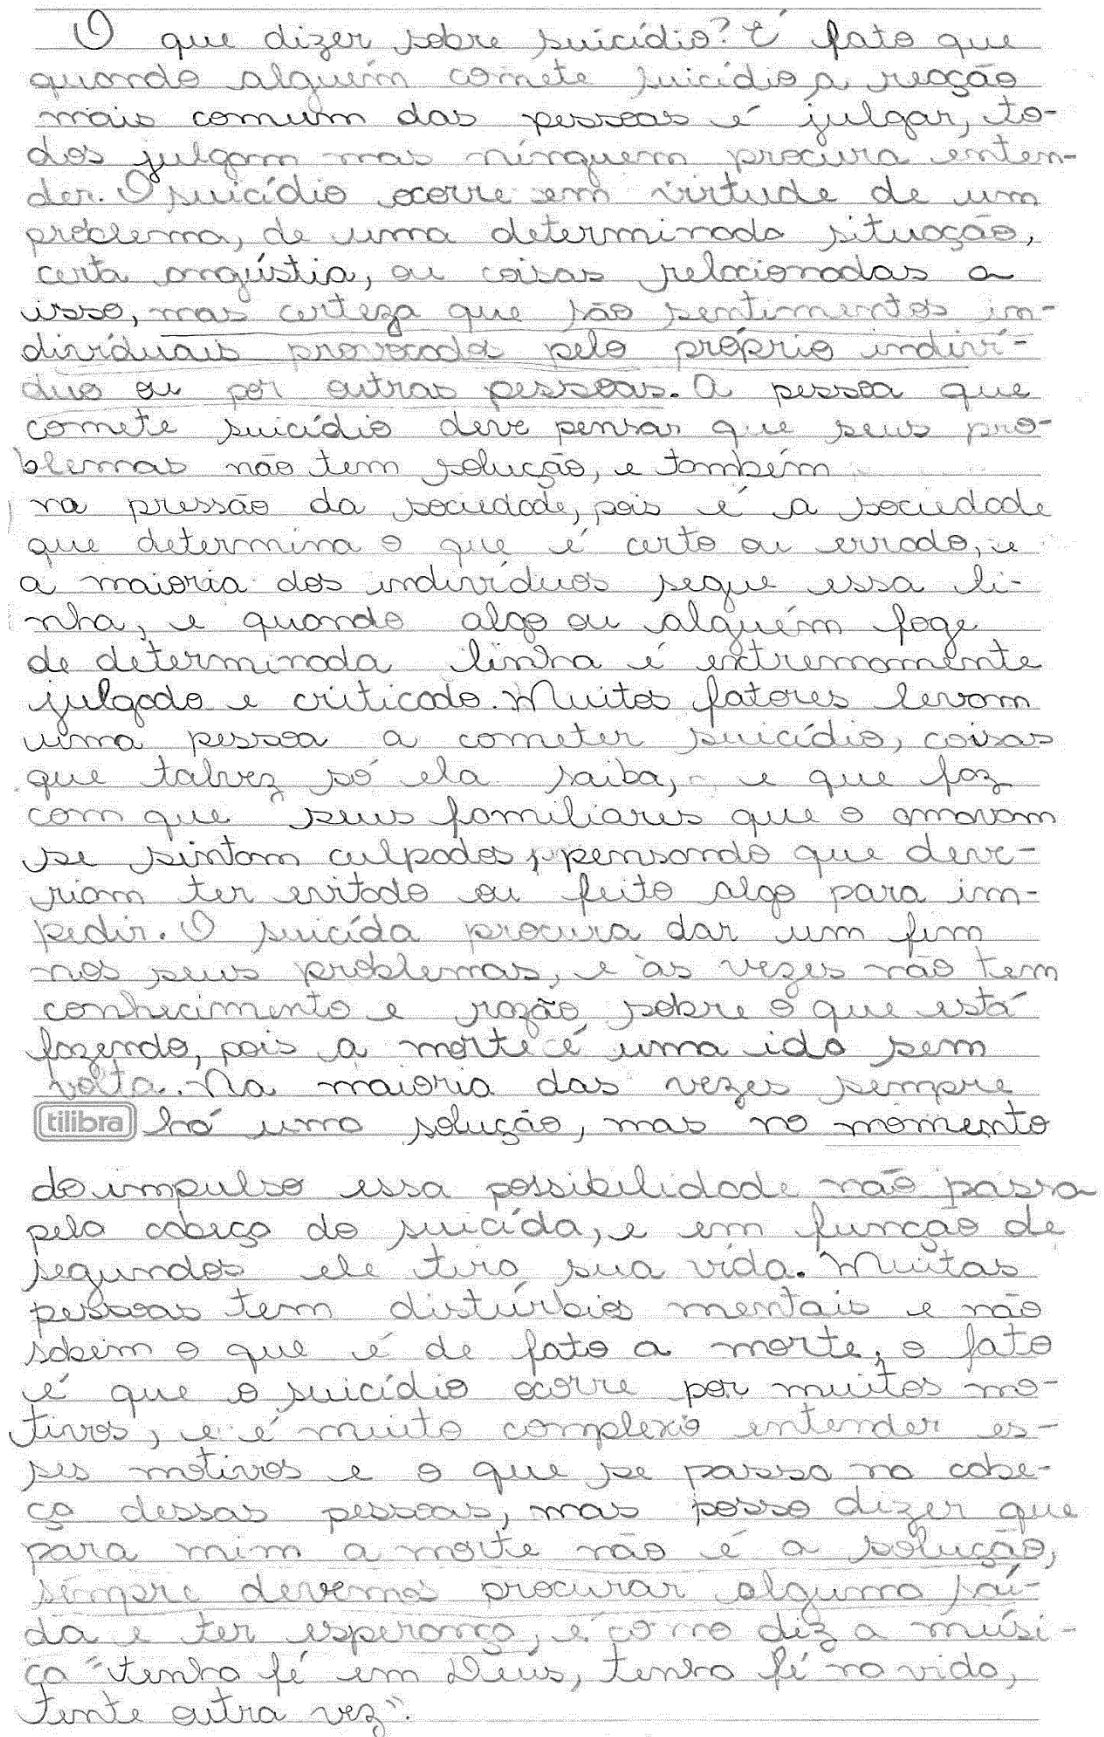 O que dizer sobre suicídio? É fato que
quando alguém comete suicídio a reação
mais comum das pessoas é julgar, to-
dos julgam mas ninguem procura enten-
der. O suicídio ocorre em virtude de um
problema, de uma determinada situação,
certa angústia, ou coisas relacionadas a
isso, mas certeza que são sentimentos in-
dividuais provocados pelo próprio indiví-
duo ou por outras pessoas. A pessoa que
comete suicídio deve pensar que seus pro-
blemas não tem solução, e também
na pressão da sociedade, pois é a sociedade
que determina o que é certo ou errado, e
a maioria dos indivíduos segue essa li-
nha, e quando algo ou alguém foge
de determinada linha é extremamente
julgado e criticado. Muitos fatores levam
uma pessoa a cometer suicídio, coisas
que talvez só ela saiba, e que faz
com que seus familiares que o amavam
se sintam culpados, pensando que deve-
riam ter evitado ou feito algo para im-
pedir. O suicída procura dar um fim
nos seus problemas, e às vezes não tem
conhecimento e razão sobre o que está
fazendo, pois a morte é uma ida sem
volta. Na maioria das vezes sempre
tilibra há uma solução, mas no momento
do impulso essa possibilidade não passa
pela cabeça do suicída, e em função de
segundos ele tira sua vida. Muitas
pessoas tem distúrbios mentais e não
sabem o que é de fato a morte, o fato
é que o suicídio ocorre por muitos mo-
tivos, e é muito complexo entender es-
ses motivos e o que se passa na cabe-
ça dessas pessoas, mas posso dizer que
para mim a morte não é a solução,
sempre devemos procurar alguma saí-
da e ter esperança, e como diz a músi-
ca "tenha fé em Deus, tenha fé na vida,
tente outra vez".